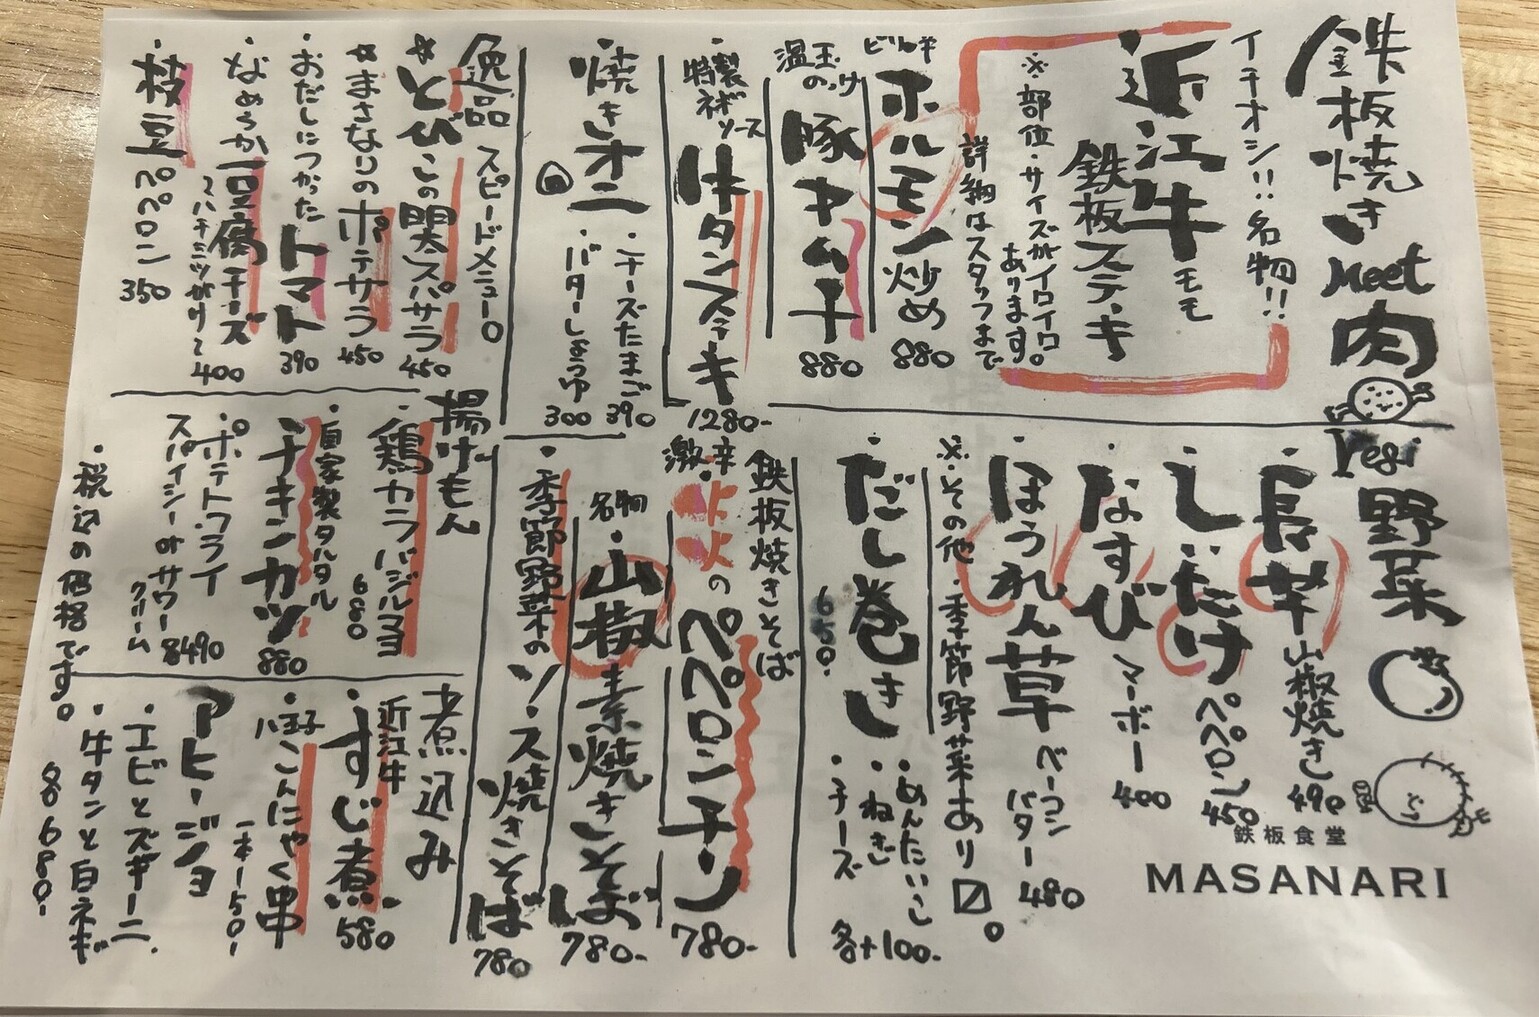 鉄板焼き
Meet 肉
イチオシ!! 名物!!
近江牛 モモ
鉄板ステーキ
※部位・サイズがイロイロあります。
詳細はスタッフまで
ピリ辛
ホルモン炒め 880
温玉のっけ
豚キムチ 880
特製ネギソース
牛タンステーキ 1280-
・焼きオニ
・チーズたまご 390
・バターしょうゆ 300
逸品 スピードメニュー
☆とびこの関スパサラ 450
☆まさなりのポテサラ 450
・おだしにつかったトマト 390
・なめらか豆腐チーズ
〜ハチミツがけ〜 400
・枝豆ペペロン 350
Vegi 野菜
・長芋 山椒焼き 490
・しいたけ ペペロン 450
・なすび マーボー 400
・ほうれん草 ベーコンバター 480
※・その他・季節野菜あり〼。
・だし巻き 680-
・めんたいし
・ねぎ
・チーズ
各+100-
鉄板焼きそば
激辛・炎のペペロンチーノ 780-
名物・山椒素焼きそば 780-
・季節野菜のソース焼きそば 780
揚げもん
・鶏カラバジルマヨ 680
・自家製タルタル
チキンカツ 880
・ポテトフライ
スパイシーorサワークリーム 各490
・税込の価格です。
煮込み
・近江牛
すじ煮 580
・八子こんにゃく串
一本150-
アヒージョ
・エビとズッキーニ
・牛タンと白ネギ
各680-
鉄板食堂
MASANARI